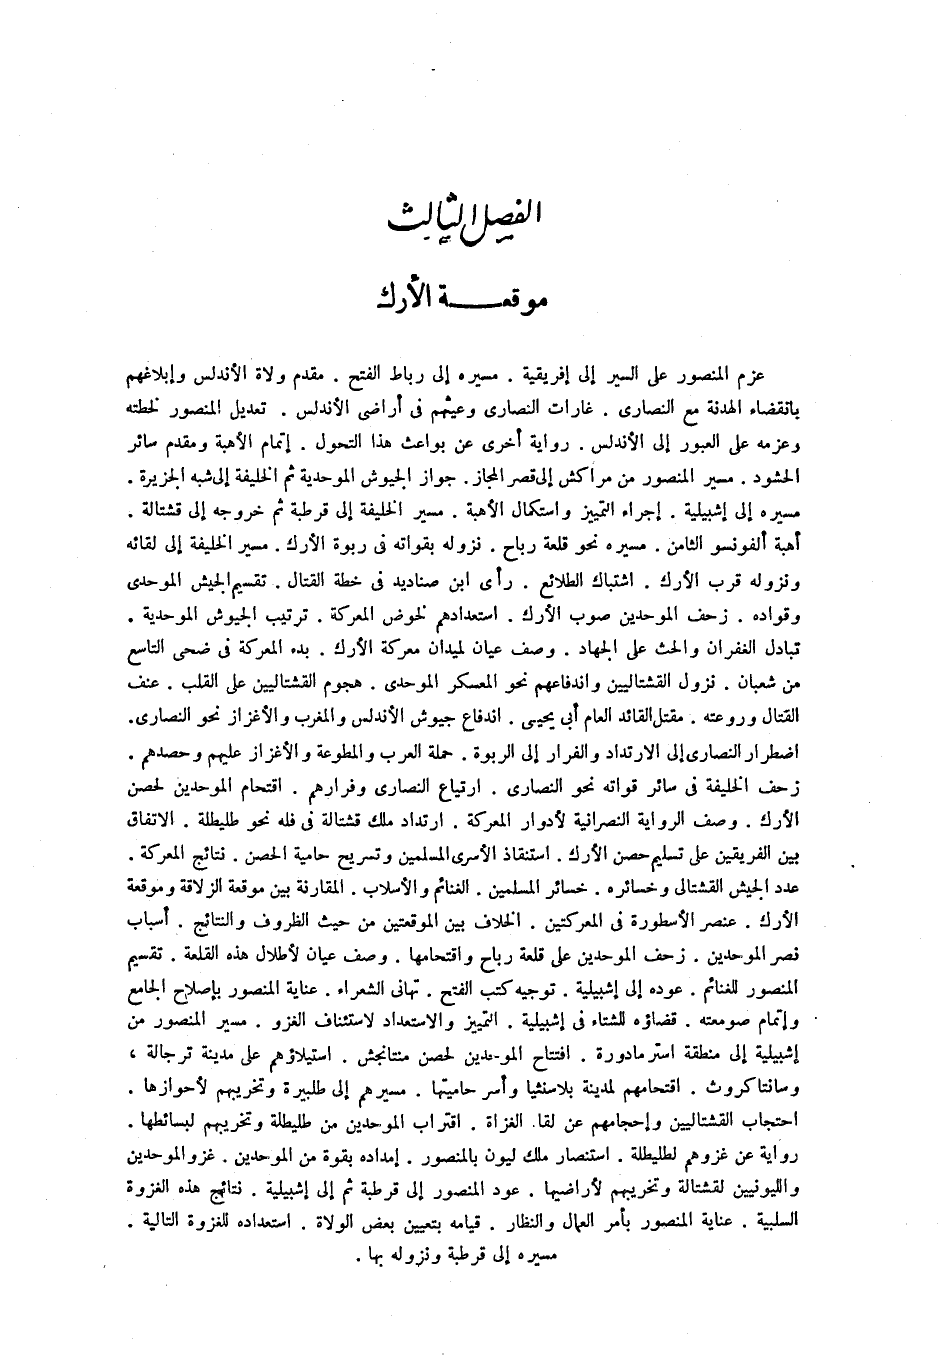 الفصل الثالث
موقعة الأرك
عزم المنصور على السير إلى إفريقية . مسيره إلى رباط الفتح . مقدم ولاة الأندلس وإبلاغهم
بانقضاء الهدنة مع النصارى . غارات النصارى وعيثهم فى أراضى الأندلس . تعديل المنصور لخطته
وعزمه على العبور إلى الأندلس . رواية أخرى عن بواعث هذا التحول . إتمام الأهبة ومقدم سائر
الحشود . مسير المنصور من مراكش إلى قصر المجاز . جواز الجيوش الموحدية ثم الخليفة إلى شبه الجزيرة .
مسيره إلى إشبيلية . إجراء التمييز واستكمال الأهبة . مسير الخليفة إلى قرطبة ثم خروجه إلى قشتالة .
أهبة ألفونسو الثامن . مسيره نحو قلعة رباح . نزوله بقواته فى ربوة الأرك . مسير الخليفة إلى لقائه
ونزوله قرب الأرك . اشتباك الطلائع . رأى ابن صناديد فى خطة القتال . تقسيم الجيش الموحدى
وقواده . زحف الموحدين صوب الأرك . استعدادهم لخوض المعركة . ترتيب الجيوش الموحدية .
تبادل الغفران والحث على الجهاد . وصف عيان لميدان معركة الأرك . بدء المعركة فى ضحى التاسع
من شعبان . نزول القشتاليين واندفاعهم نحو المعسكر الموحدى . هجوم القشتاليين على القلب . عنف
القتال وروعته . مقتل القائد العام أبى يحيى . اندفاع جيوش الأندلس والمغرب والأغزاز نحو النصارى .
اضطرار النصارى إلى الارتداد والفرار إلى الربوة . حملة العرب والمطوعة والأغزاز عليهم وحصدهم .
زحف الخليفة فى سائر قواته نحو النصارى . ارتياع النصارى وفرارهم . اقتحام الموحدين لحصن
الأرك . وصف الرواية النصرانية لأدوار المعركة . ارتداد ملك قشتالة فى فله نحو طليطلة . الاتفاق
بين الفريقين على تسليم حصن الأرك . استنقاذ الأسرى المسلمين وتسريح حامية الحصن . نتائج المعركة .
عدد الجيش القشتالى وخسائره . خسائر المسلمين . الغنائم والأسلاب . المقارنة بين موقعة الزلاقة وموقعة
الأرك . عنصر الأسطورة فى المعركتين . الخلاف بين الموقعتين من حيث الظروف والنتائج . أسباب
نصر الموحدين . زحف الموحدين على قلعة رباح واقتحامها . وصف عيان لأطلال هذه القلعة . تقسيم
المنصور للغنائم . عوده إلى إشبيلية . توجيه كتب الفتح . تهانى الشعراء . عناية المنصور بإصلاح الجامع
وإتمام صومعته . قضاؤه للشتاء فى إشبيلية . التمييز والاستعداد لاستئناف الغزو . مسير المنصور من
إشبيلية إلى منطقة استرمادورة . افتتاح الموحدين لحصن منتانجش . استيلاؤهم على مدينة ترجالة ،
وسانتاكروث . اقتحامهم لمدينة بلاسنثيا وأسر حاميتها . مسيرهم إلى طلبيرة وتخريبهم لأحوازها .
احتجاب القشتاليين وإحجامهم عن لقاء الغزاة . اقتراب الموحدين من طليطلة وتخريبهم لبسائطها .
رواية عن غزوهم لطليطلة . استنصار ملك ليون بالمنصور . إمداده بقوة من الموحدين . غزو الموحدين
والليونيين لقشتالة وتخريبهم لأراضيها . عود المنصور إلى قرطبة ثم إلى إشبيلية . نتائج هذه الغزوة
السلبية . عناية المنصور بأمر العمال والنظار . قيامه بتعيين بعض الولاة . استعداده للغزوة التالية .
مسيره إلى قرطبة ونزوله بها .